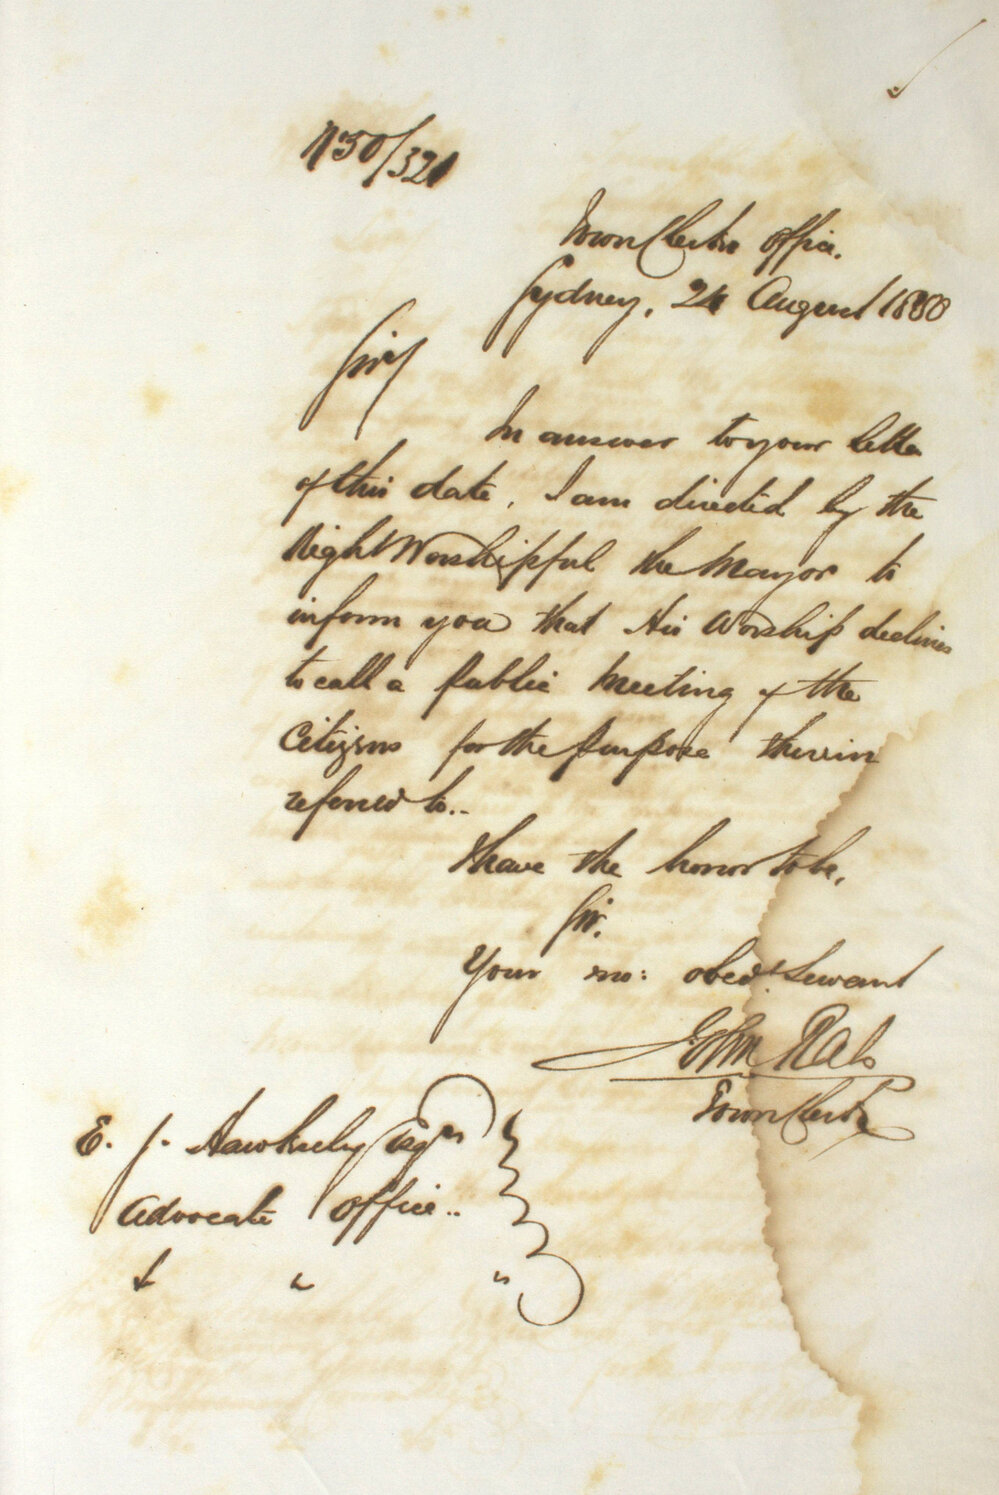 Town Clerks Office.
Sydney, 24 August 1850
Sir,
In answer to your letter
of this date, I am directed by the
Right Worshipful the Mayor to
inform you that His Worship declines
to call a public meeting of the
Citizens for the purpose therein
referred to..
I have the honor to be,
Sir.
Your mo: obedt. Servant
John Rae
Town Clerk
E. J. Hawksley Esqre
Advocate Office..
& " "